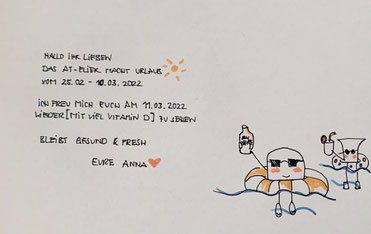 HALLO IHR LIEBEN
DAS AT-ELIER MACHT URLAUB
VOM 25.02 - 10.03.2022
ICH FREU MICH EUCH AM 11.03.2022
WIEDER [MIT VIEL VITAMIN D] ZU SEHEN
BLEIBT GESUND & FRESH
EURE ANNA